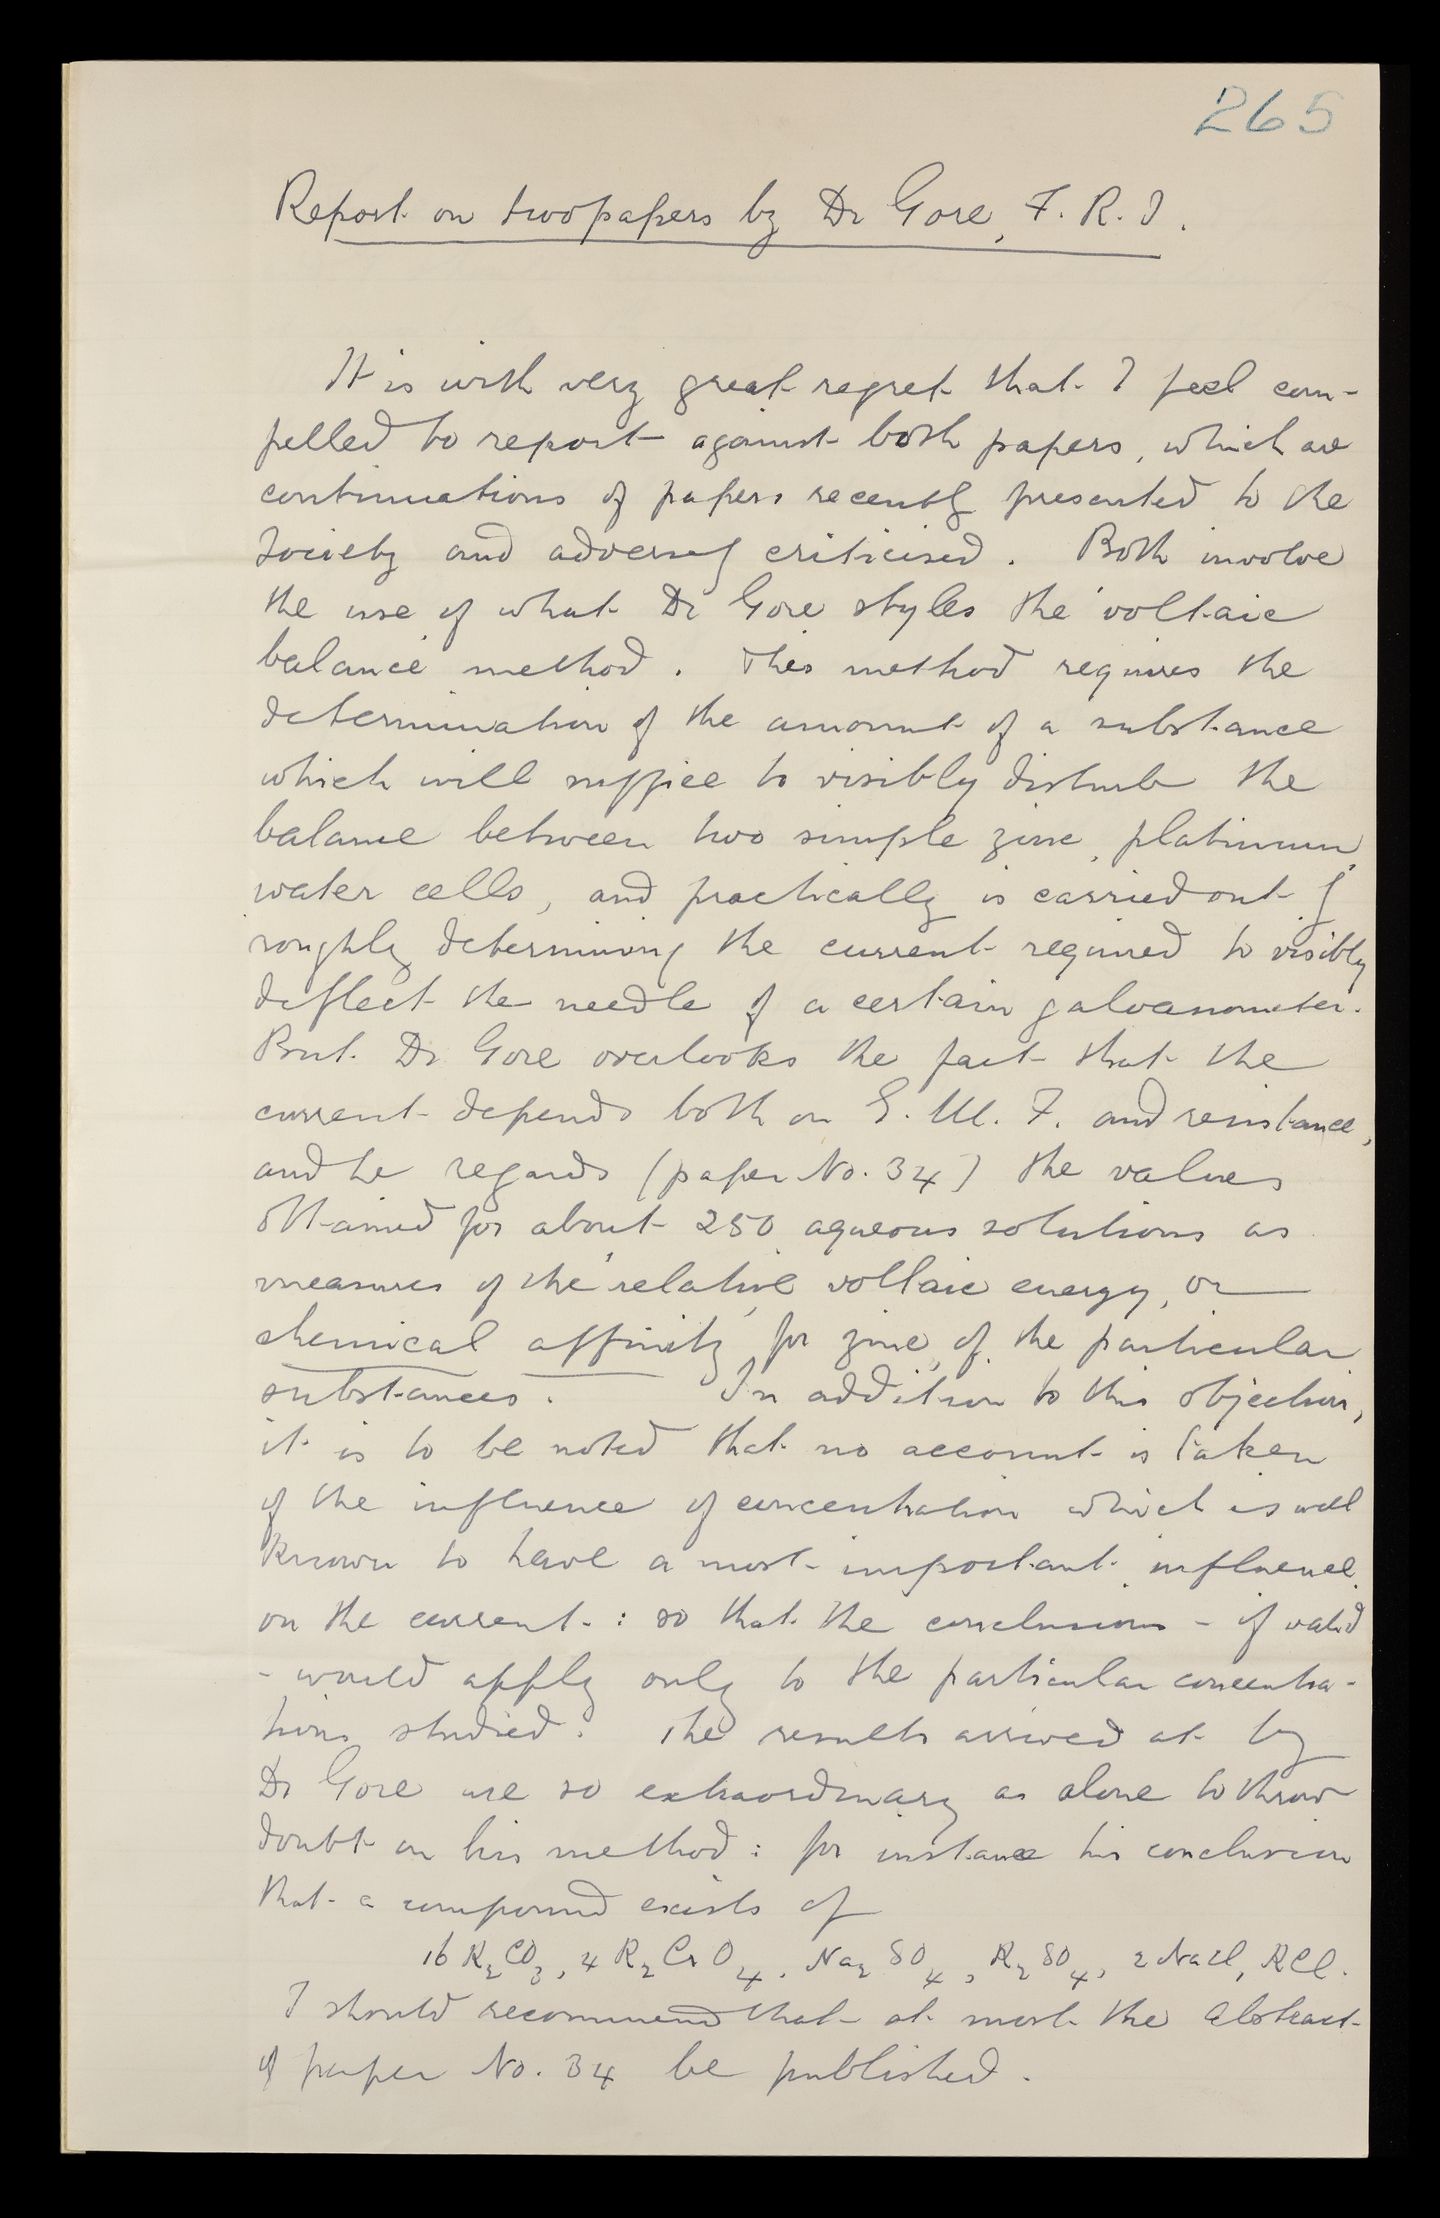 265
Report on two papers by Dr Gore, F.R.S.
It is with very great regret that I feel com-
pelled to report against both papers, which are
continuations of papers recently presented to the
Society and adversely criticised. Both involve
the use of what Dr Gore styles the 'voltaic
balance' method. This method requires the
determination of the amount of a substance
which will suffice to visibly disturb the
balance between two simple zinc, platinum,
water cells, and practically is carried out by
roughly determining the current required to visibly
deflect the needle of a certain galvanometer.
But Dr Gore overlooks the fact that the
current depends both on E.M.F. and resistance,
and he regards (paper No. 34) the values
obtained for about 250 aqueous solutions as
measures of the 'relative voltaic energy, or
chemical affinity for zinc, of the particular
substances. In addition to this objection,
it is to be noted that no account is taken
of the influence of concentration which is well
known to have a most important influence
on the current: so that the conclusions - if valid
- would apply only to the particular concentra-
tions studied. The results arrived at by
Dr Gore are so extraordinary as alone to throw
doubt on his method: for instance his conclusion
that a compound exists of
16 K₂CO₃, 4 K₂CrO₄, Na₂SO₄, K₂SO₄, 2 NaCl, KCl.
I should recommend that at most the Abstract
of paper No. 34 be published.